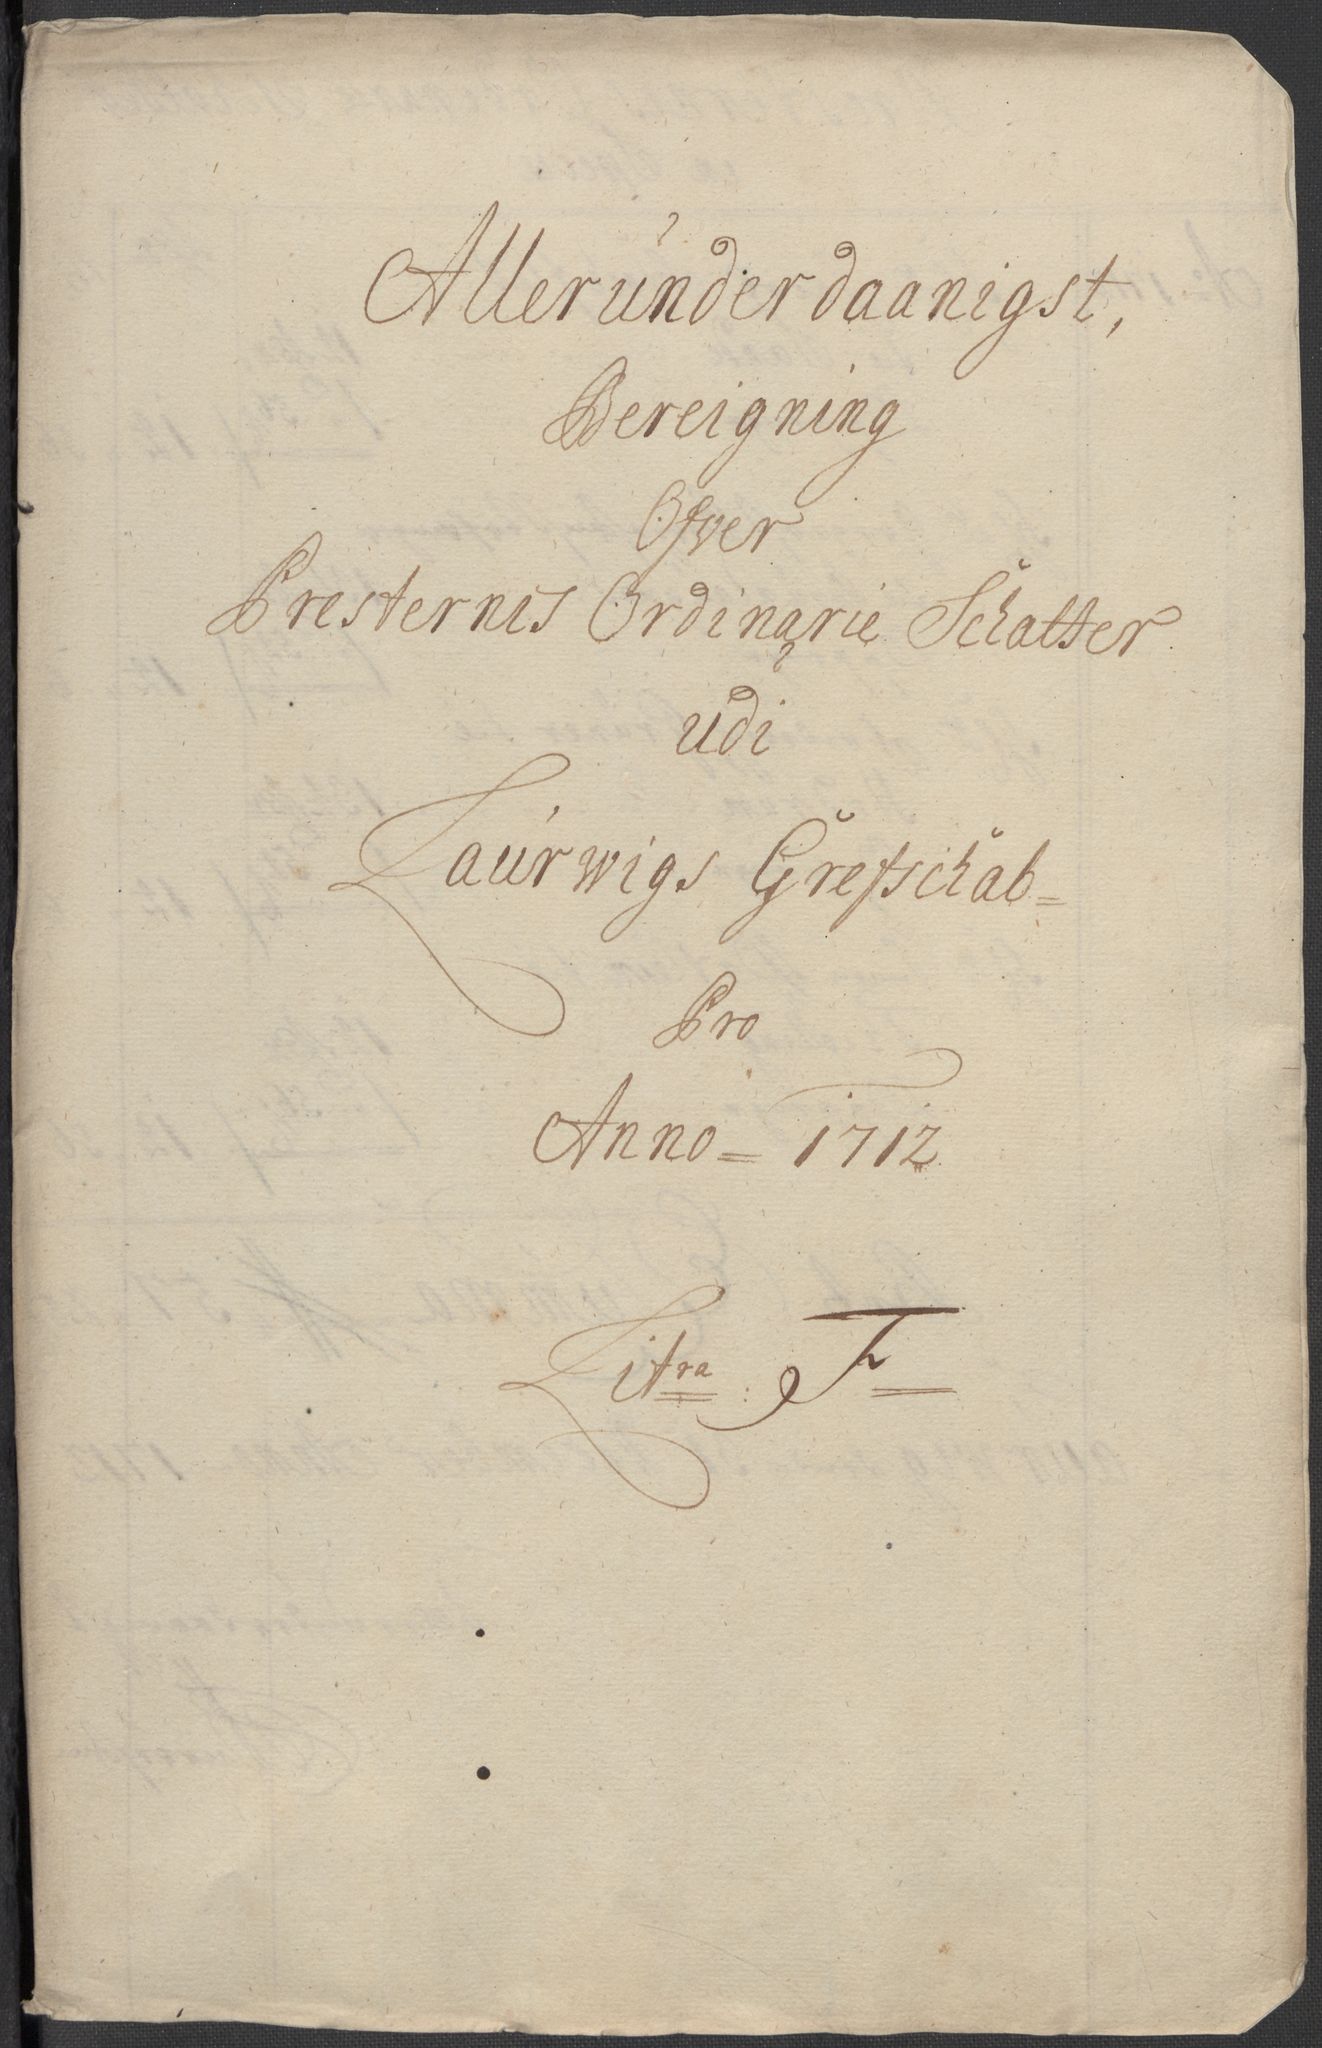 Allerúnderdaanigst,
Bereigning
Ofver
Presternis Ordinarie Schatter
udi
Laúrwigs Grefschab=
Pro
Anno= 1712
Litra: F=